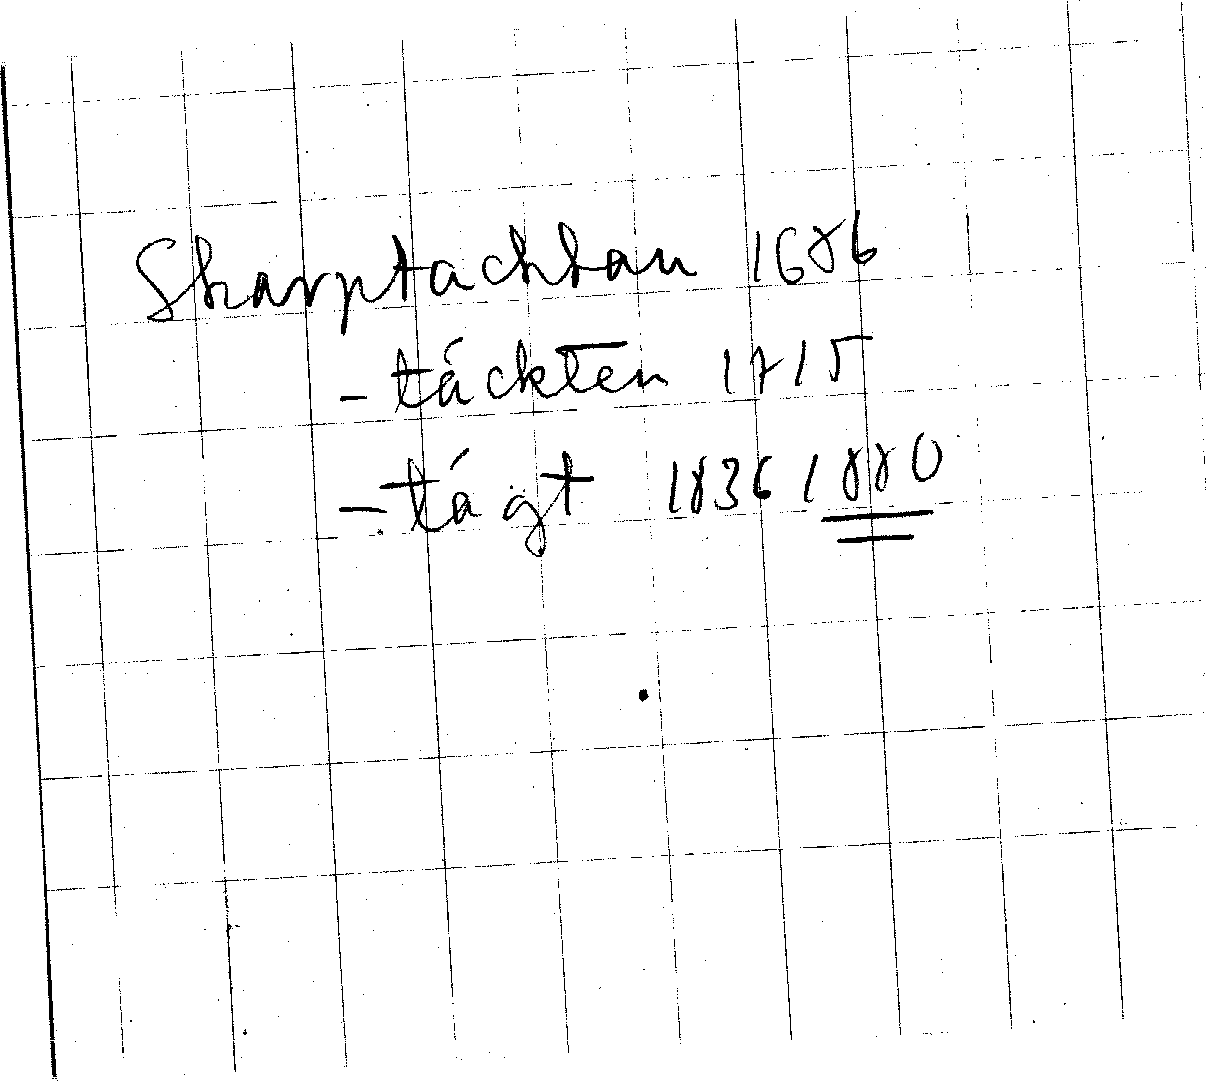 Skarptachtan 1686
- täckten 1715
- tägt 1836 1880